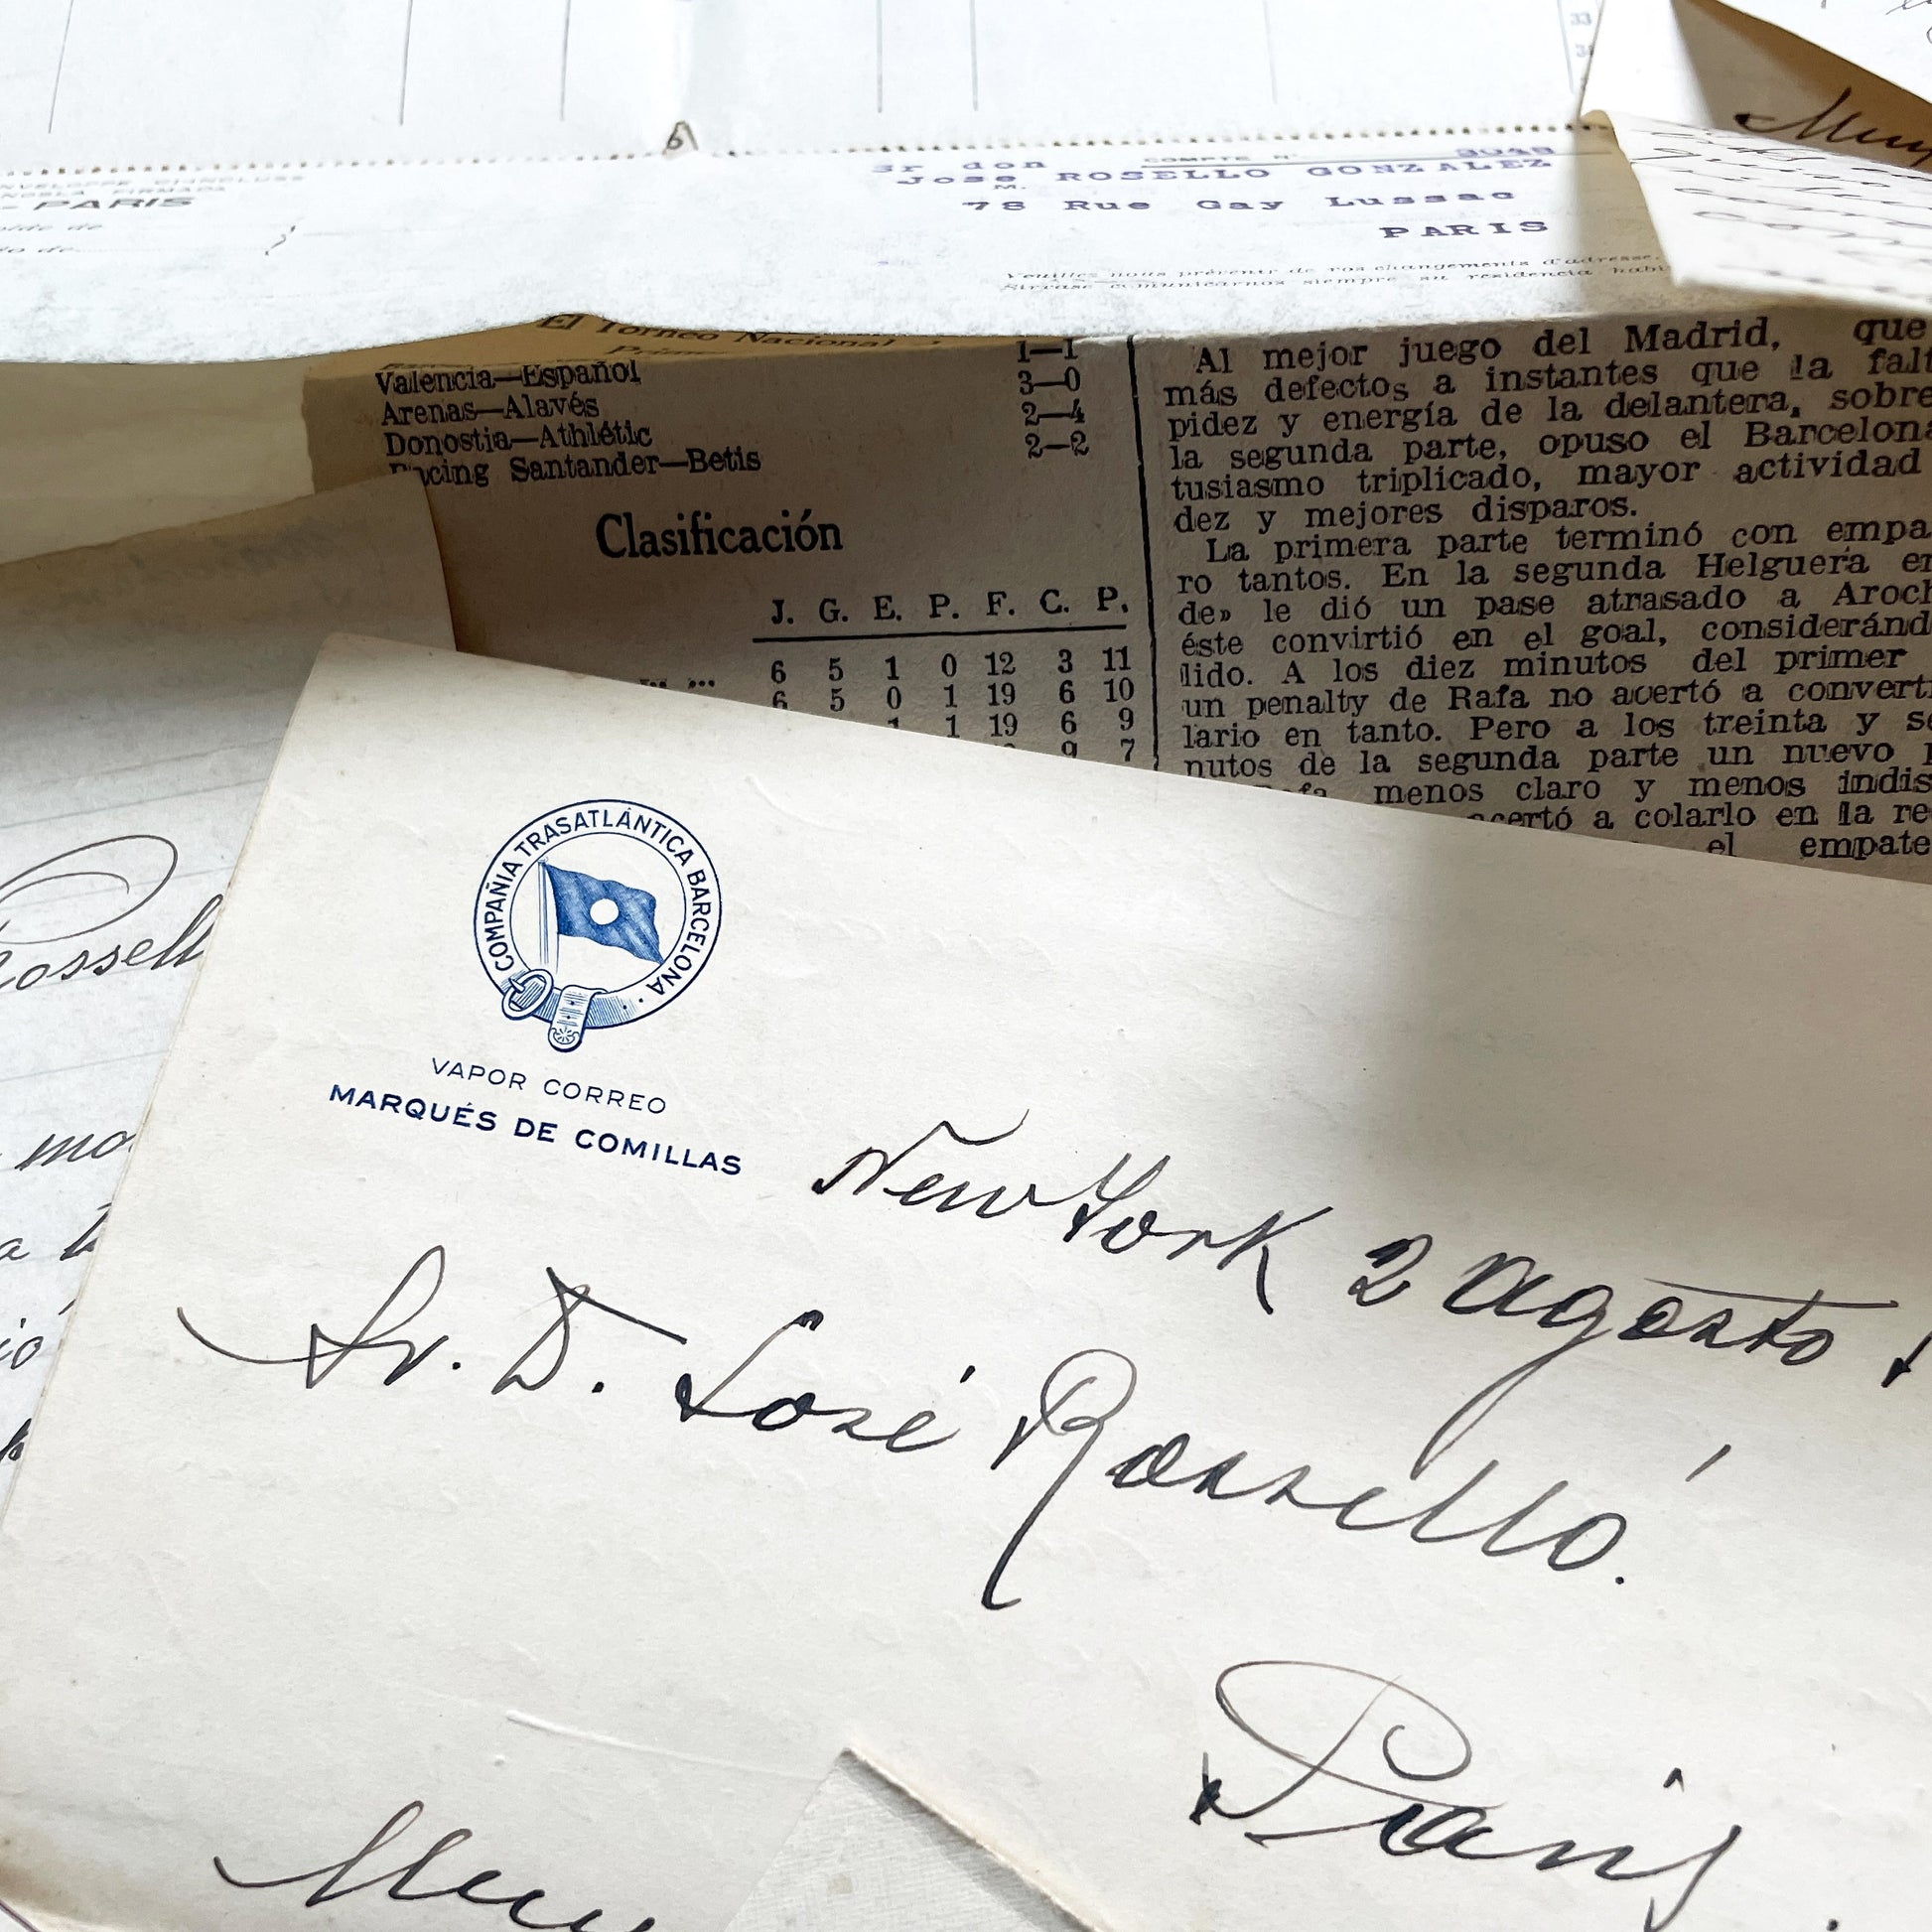 6
Sr don COMPTE N° 3048
Jose ROSELLO GONZALEZ
M.
78 Rue Gay Lussac
PARIS
PARIS
Veuillez nous prévenir de vos changements d'adresse.
Sírvase comunicarnos siempre su residencia
El Torneo Nacional
1—1
Valencia—Español 3—0
Arenas—Alavés 2—4
Donostia—Athlétic 2—2
Santander—Betis
Clasificación
J. G. E. P. F. C. P.
6 5 1 0 12 3 11
6 5 0 1 19 6 10
1 1 19 6 9
9 7
Al mejor juego del Madrid, que
más defectos a instantes que la falt
pidez y energía de la delantera, sobre
la segunda parte, opuso el Barcelona
tusiasmo triplicado, mayor actividad
dez y mejores disparos.
La primera parte terminó con empa
ro tantos. En la segunda Helguera en
de» le dió un pase atrasado a Aroch
éste convirtió en el goal, consideránd
lido. A los diez minutos del primer
un penalty de Rafa no acertó a convert
lario en tanto. Pero a los treinta y se
nutos de la segunda parte un nuevo p
menos claro y menos indis
acertó a colarlo en la re
el empate
COMPAÑIA TRASATLÁNTICA BARCELONA
VAPOR CORREO
MARQUÉS DE COMILLAS
New York 2 agosto
Sr. D. José Rosselló.
Paris.
Muy
Rossell
Muy